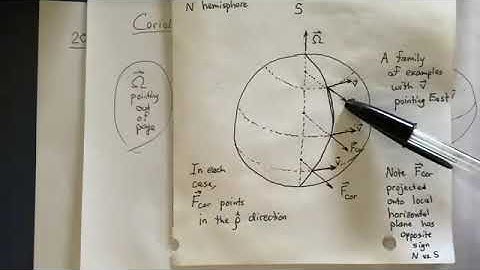 N hemisphere
S
20
Coriol
Ω⃗
pointing
out
of
page
Ω⃗
A family
of examples
with v⃗
pointing East
v⃗
v⃗
F⃗cor
v⃗
F⃗cor
In each
case,
F⃗cor points
in the ρ̂ direction
Note F⃗cor
projected
onto local
horizontal
plane has
opposite
sign
N vs. S